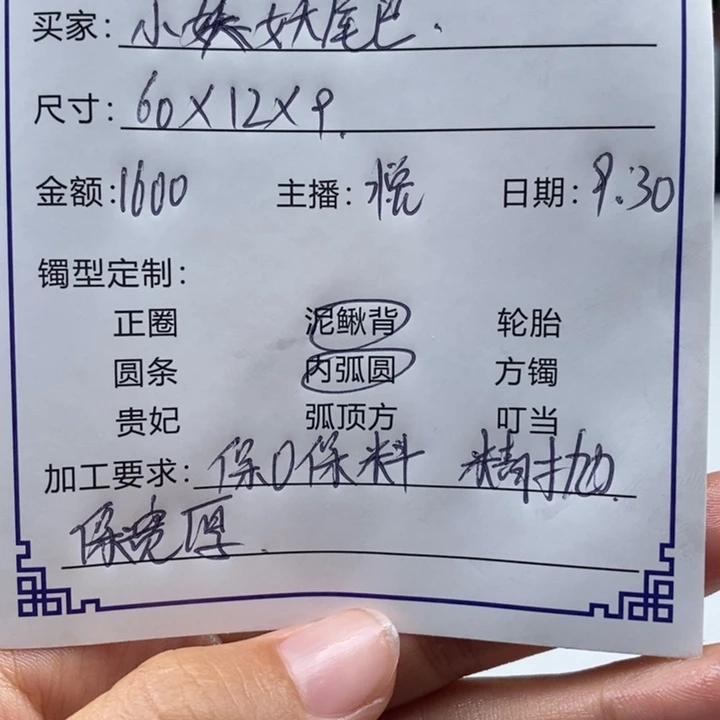 买家: 小妖妖尾巴.
尺寸: 60X12X9.
金额:1600 主播: 悦 日期: 9.30
镯型定制:
正圈 泥鳅背 轮胎
圆条 内弧圆 方镯
贵妃 弧顶方 叮当
加工要求: 保0保料 精抛.
保宽厚.